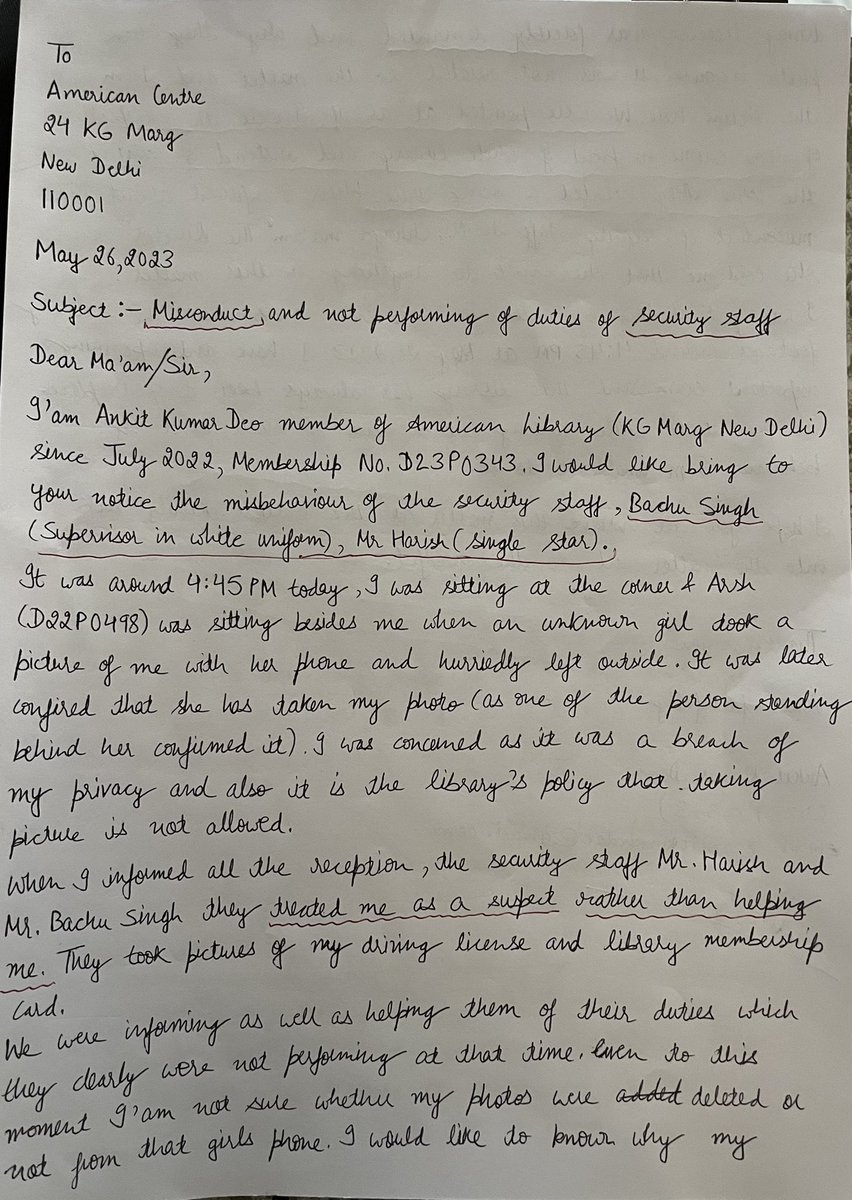 To
American Centre
24 KG Marg
New Delhi
110001
May 26,2023
Subject :- Misconduct, and not performing of duties of security staff
Dear Ma'am/Sir,
I'am Ankit Kumar Deo member of American Library (KG Marg New Delhi)
since July 2022, Membership No. D23P0343. I would like bring to
your notice the misbehaviour of the security staff, Bachu Singh
(Supervisor in white uniform), Mr Harish (single star).
It was around 4:45 PM today, I was sitting at the corner & Arsh
(D22P0498) was sitting besides me when an unknown girl took a
picture of me with her phone and hurriedly left outside. It was later
confired that she has taken my photo (as one of the person standing
behind her confirmed it). I was concerned as it was a breach of
my privacy and also it is the library's policy that taking
picture is not allowed.
When I informed all the reception, the security staff Mr. Harish and
Mr. Bachu Singh they treated me as a suspect rather than helping
me. They took pictures of my driving license and library membership
Card.
We were informing as well as helping them of their duties which
they clearly were not performing at that time. Even to this
moment I'am not sure whether my photos were added deleted or
not from that girls phone. I would like to known why my